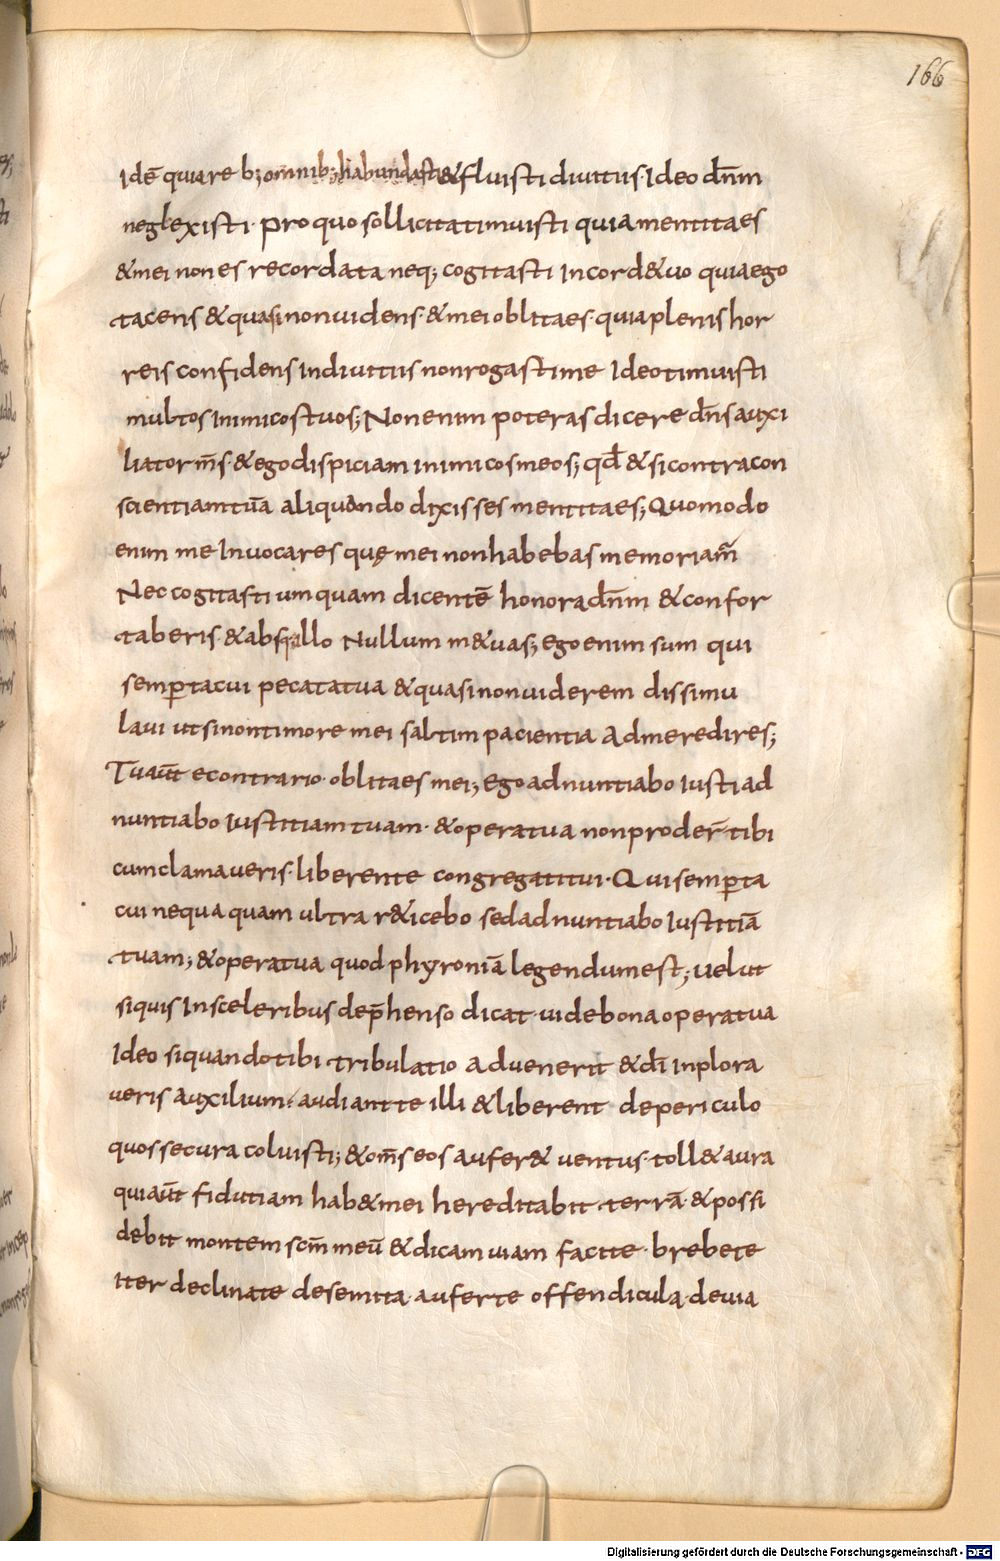 166
Idē quiare b; omnib; habundasti & fluisti diuitiis· Ideo dn̄m
neglexisti· pro quo sollicita timuisti quia mentita es
& mei non es recordata neq; cogitasti In cord& uo quia ego
tacens & quasi non uidens· & mei oblita es· quia plenis hor
reis confidens In diuitiis non rogasti me Ideo timuisti
multos Inimicos tuos; Non enim poteras dicere dn̄s auxi
liator m̄s· & ego dispiciam inimicos meos; qd̄ & si contra con
scientiam tuā aliquando dixisses mentita es; Quomodo
enim me Inuocares quę mei non habebas memoriam
Nec cogitasti umquam dicentē honora dn̄m & confor
taberis· & absq· illo Nullum m&uas; ego enim sum qui
semp tacui pecata tua & quasi non uiderem dissimu
laui ut si non timore mei saltim pacientia Ad me redires;
Tu aūt e contrario· oblita es mei; Ego adnuntiabo Iusti ad
nuntiabo Iustitiam tuam· & opera tua non proder̄ tibi
cum clamaueris· liberent te congregati tui· Qui semp ta
cui nequaquam ultra r&icebo sed adnuntiabo Iustitiā
tuam; & opera tua quod p hyroniā legendum est; uelut
si quis In sceleribus dep̄henso dicat· uide bona opera tua
Ideo si quando tibi tribulatio Aduenerit & dī inplora
ueris Auxilium· audiant te illi & liberent de periculo
quos secura coluisti; & om̄s eos aufer& uentus· toll& aura
qui aūt fidutiam hab& mei hereditabit terrā· & possi
debit montem scm̄ meū & dicam uiam facite· brebete
iter declinate de semita· auferte offendicula· de uia
Digitalisierung gefördert durch die Deutsche Forschungsgemeinschaft - DFG